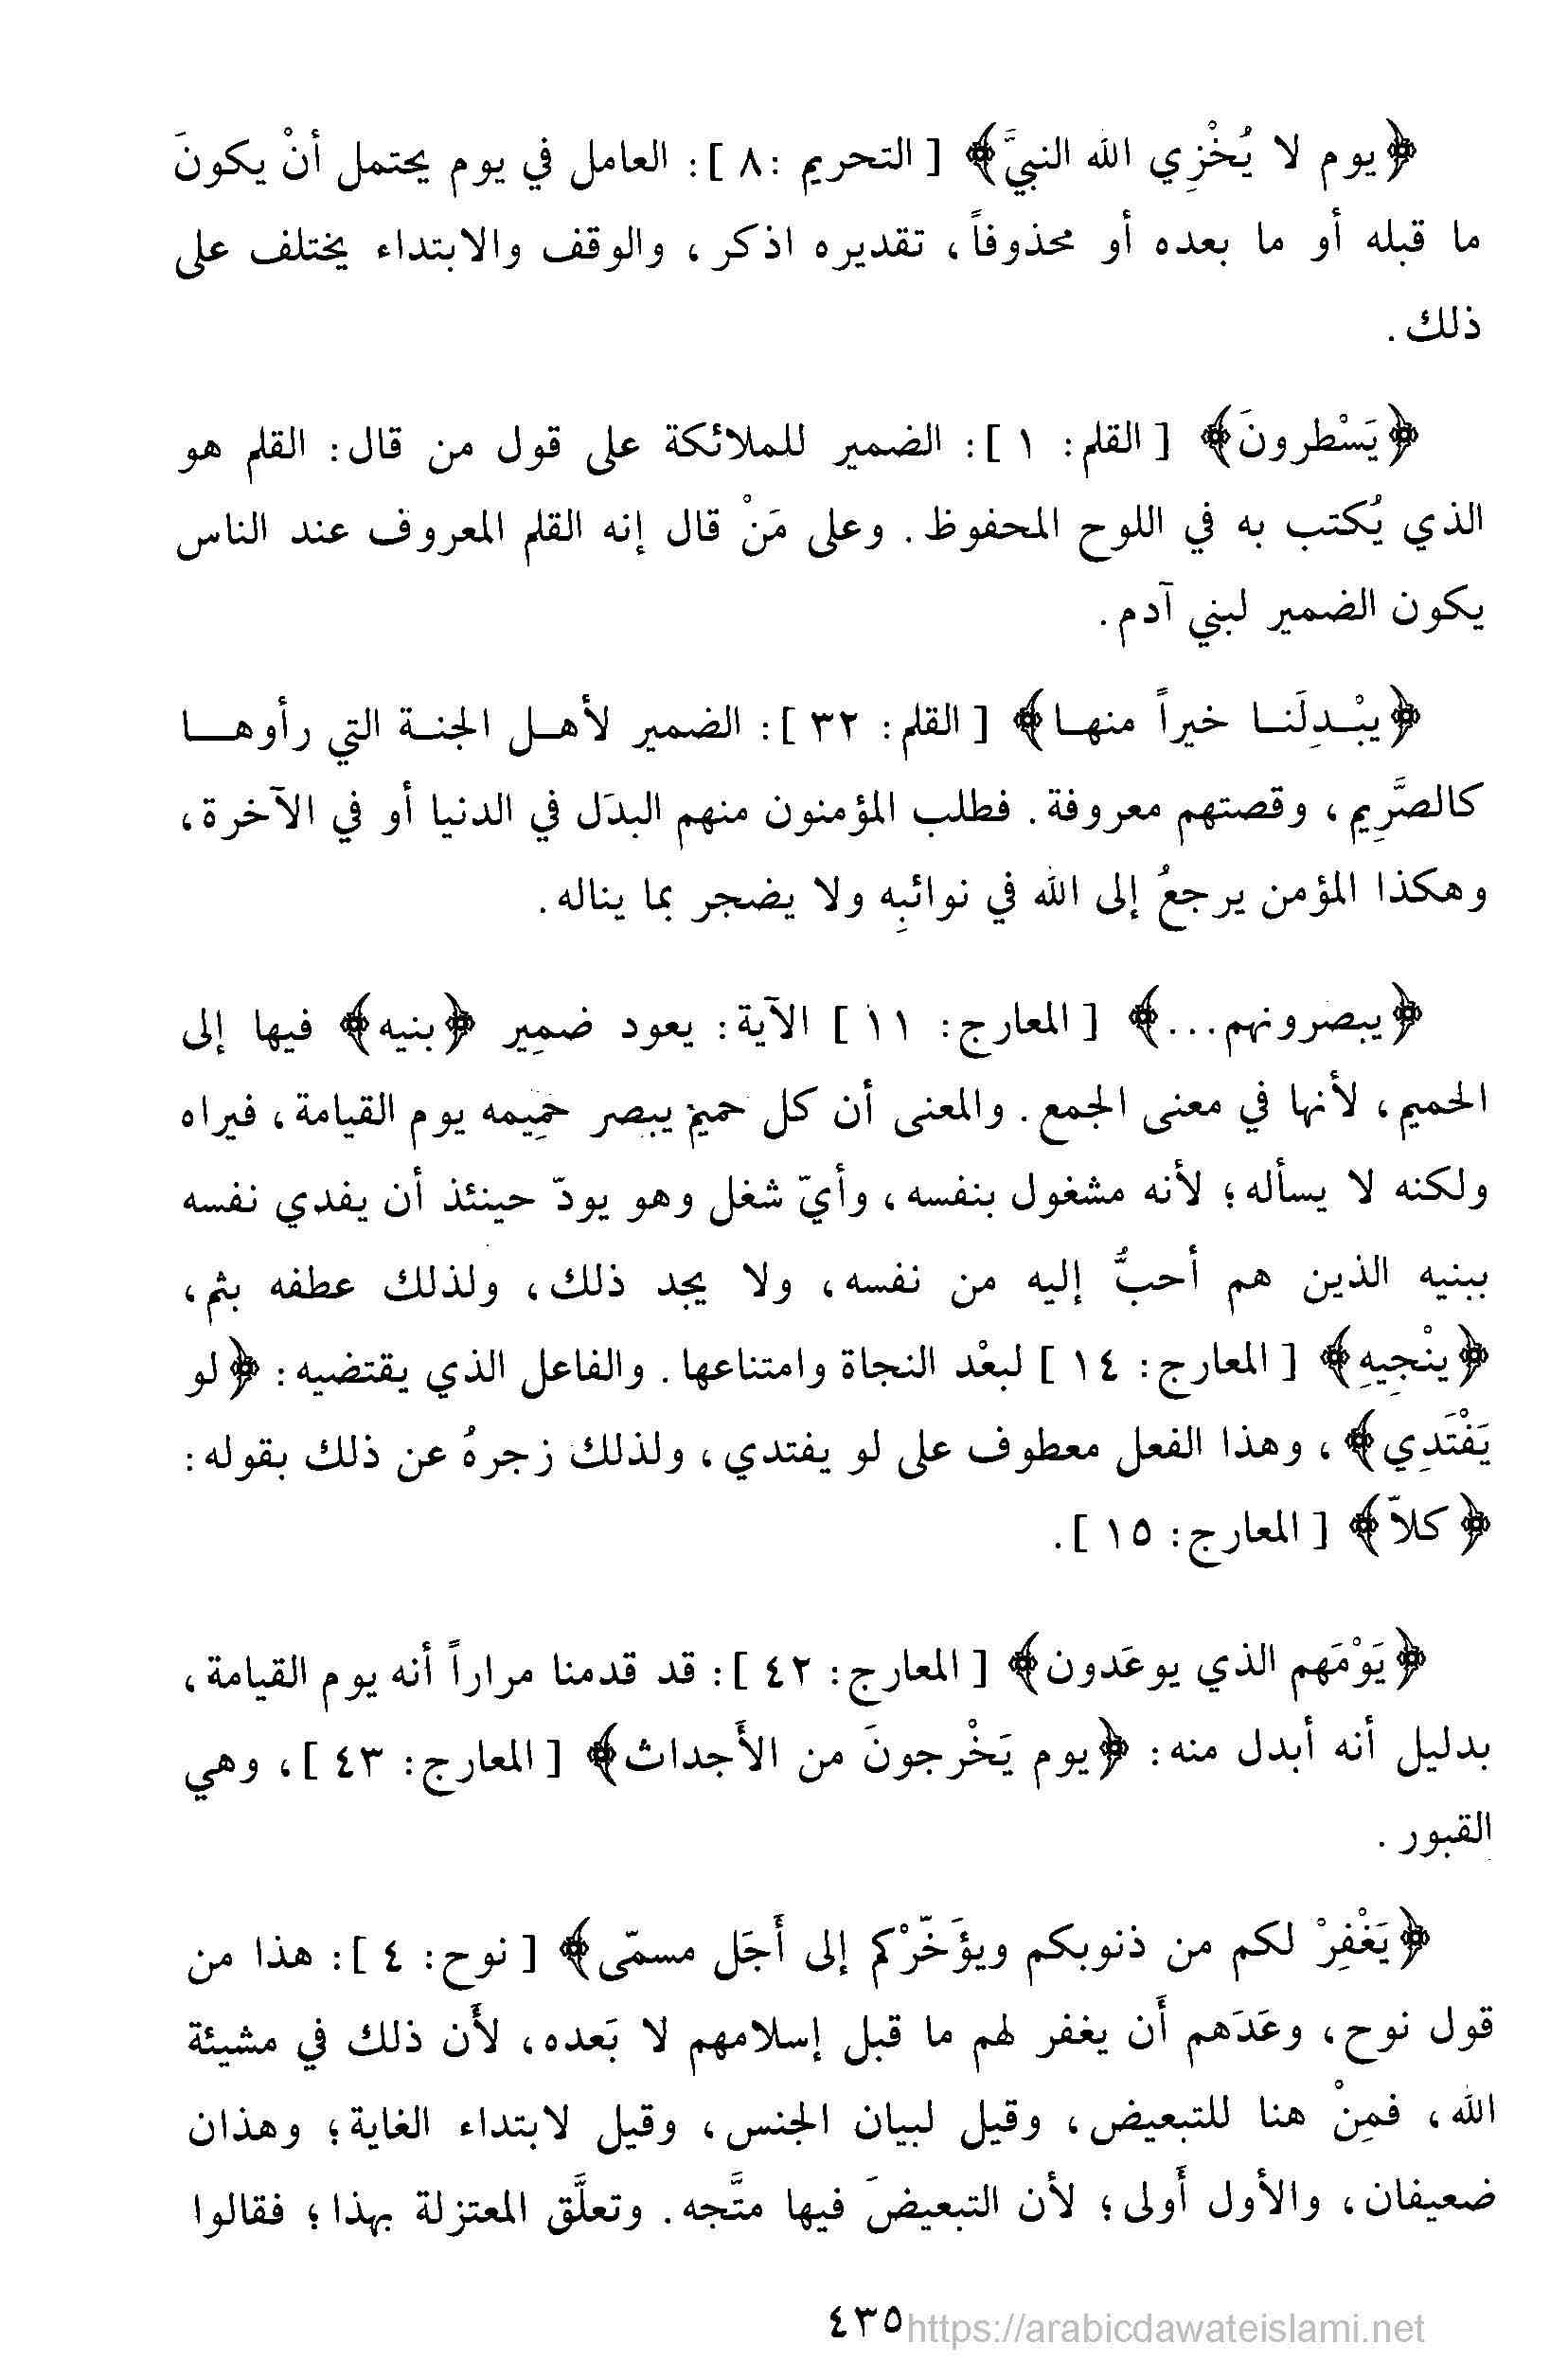 ﴿يوم لا يُخْزِي الله النبيَّ﴾ [ التحريم :٨ ]: العامل في يوم يحتمل أنْ يكونَ
ما قبله أو ما بعده أو محذوفاً، تقديره اذكر، والوقف والابتداء يختلف على
ذلك.
﴿يَسْطرونَ﴾ [ القلم: ١ ]: الضمير للملائكة على قول من قال: القلم هو
الذي يُكتب به في اللوح المحفوظ. وعلى مَنْ قال إنه القلم المعروف عند الناس
يكون الضمير لبني آدم.
﴿يبْـدِلَنـا خيراً منهـا﴾ [ القلم: ٣٢ ]: الضمير لأهـل الجنـة التي رأوهـا
كالصَّرِيم، وقصتهم معروفة. فطلب المؤمنون منهم البدَل في الدنيا أو في الآخرة،
وهكذا المؤمن يرجعُ إلى الله في نوائبِه ولا يضجر بما يناله.
﴿يبصرونهم...﴾ [ المعارج: ١١ ] الآية: يعود ضمِير ﴿بنيه﴾ فيها إلى
الحميم، لأنها في معنى الجمع. والمعنى أن كل حميم يبصر حمِيمه يوم القيامة، فيراه
ولكنه لا يسأله؛ لأنه مشغول بنفسه، وأيّ شغل وهو يودّ حينئذ أن يفدي نفسه
ببنيه الذين هم أحبُّ إليه من نفسه، ولا يجد ذلك، ولذلك عطفه بثم،
﴿ينْجِيهِ﴾ [ المعارج: ١٤ ] لبعْد النجاة وامتناعها. والفاعل الذي يقتضيه: ﴿لو
يَفْتَدِي﴾، وهذا الفعل معطوف على لو يفتدي، ولذلك زجرهُ عن ذلك بقوله:
﴿كلاّ﴾ [ المعارج: ١٥ ].
﴿يَوْمَهم الذي يوعَدون﴾ [ المعارج: ٤٢ ]: قد قدمنا مراراً أنه يوم القيامة،
بدليل أنه أبدل منه: ﴿يوم يَخْرجونَ من الأَجداث﴾ [ المعارج: ٤٣ ]، وهي
القبور.
﴿يَغْفِرْ لكم من ذنوبكم ويؤَخّرْكم إلى أَجَل مسمّى﴾ [ نوح: ٤ ]: هذا من
قول نوح، وعَدَهم أَن يغفر لهم ما قبل إسلامهم لا بَعده، لأَن ذلك في مشيئة
الله، فمِنْ هنا للتبعيض، وقيل لبيان الجنس، وقيل لابتداء الغاية؛ وهذان
ضعيفان، والأول أَولى؛ لأن التبعيضَ فيها متَّجه. وتعلَّق المعتزلة بهذا؛ فقالوا
٤٣٥
https://arabicdawateislami.net